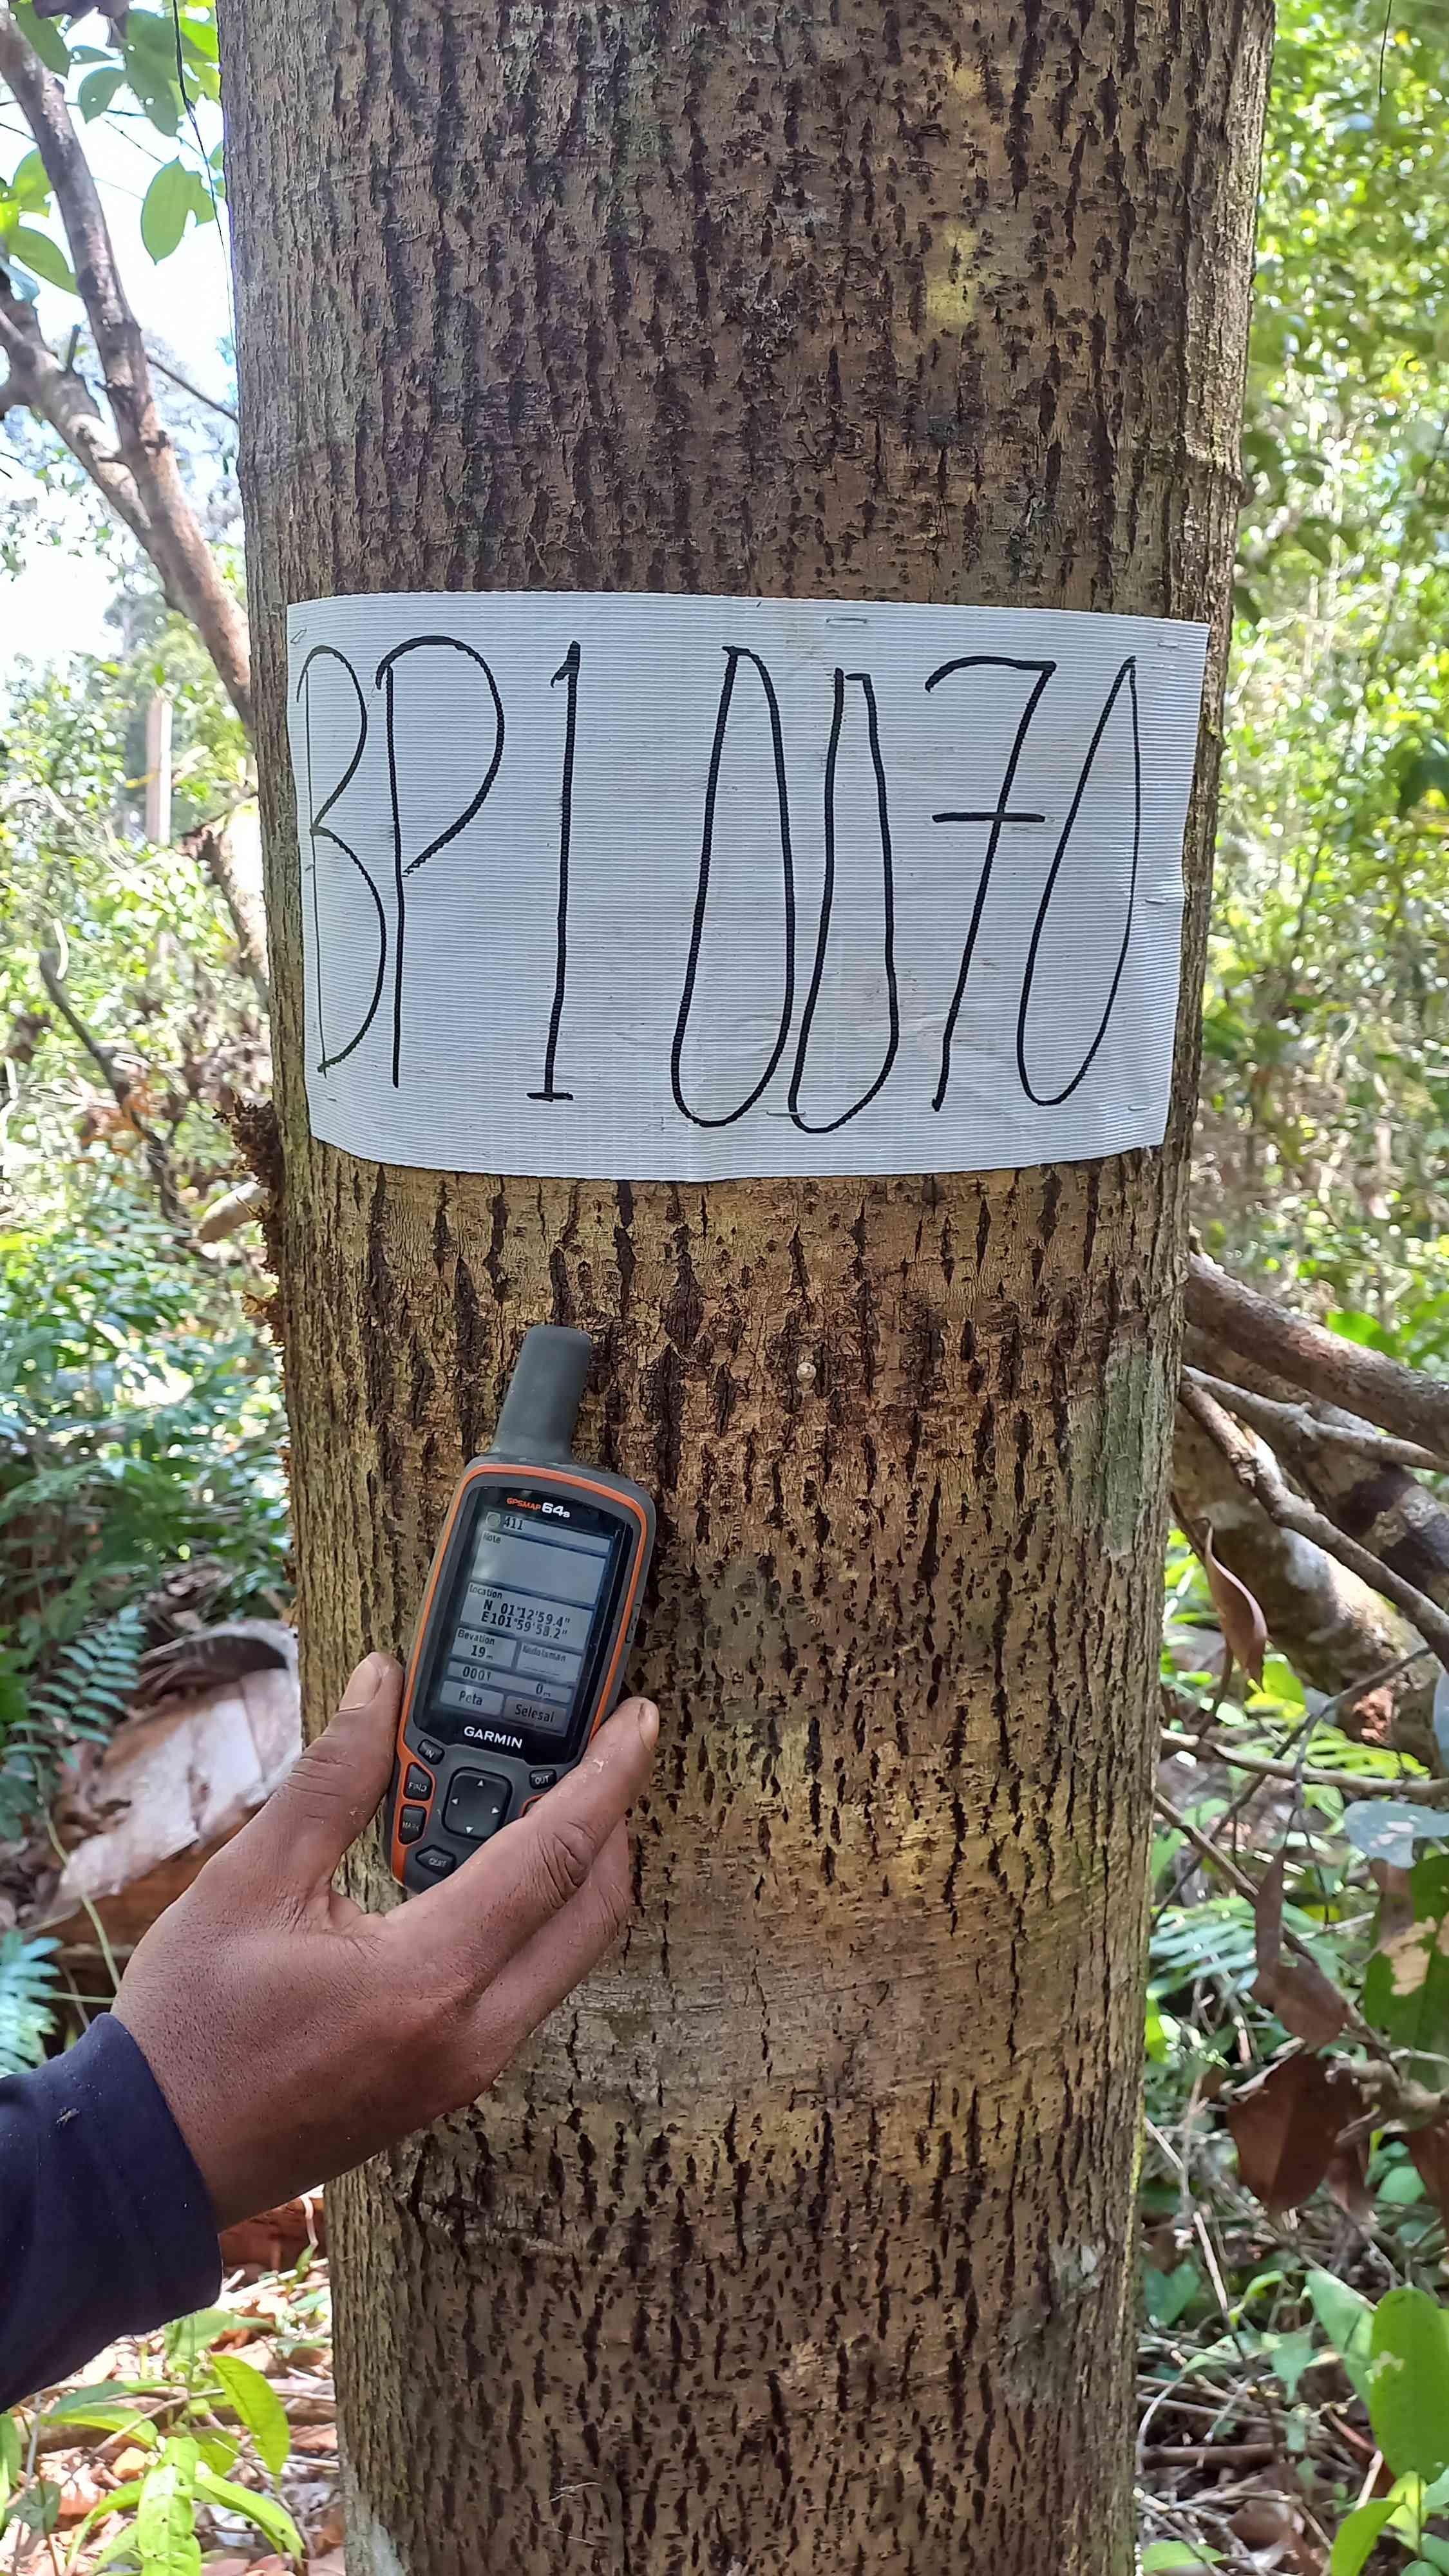 BP1 0070
GPSMAP 64s
411
Note
Location
N 01°12'59.4"
E101°59'58.2"
Elevation
19m
Kedalaman
0m
Peta
Selesai
GARMIN
IN
OUT
FIND
MARK
QUIT